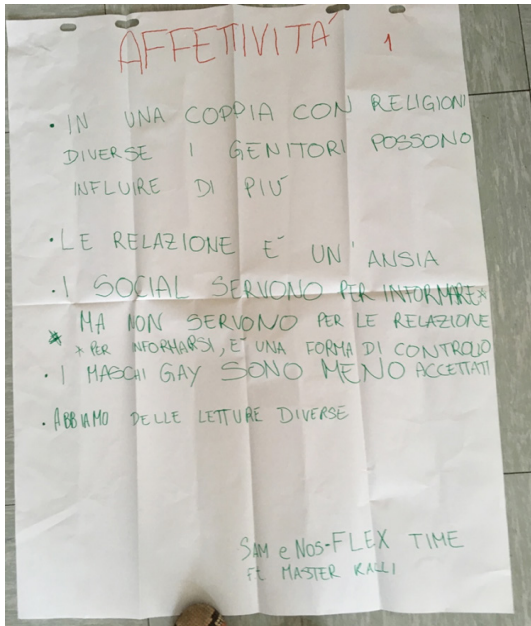 AFFETTIVITÀ 1
• IN UNA COPPIA CON RELIGIONI
DIVERSE I GENITORI POSSONO
INFLUIRE DI PIÙ
• LE RELAZIONE E' UN'ANSIA
• I SOCIAL SERVONO PER INFORMARE*
MA NON SERVONO PER LE RELAZIONE
* * PER INFORMARSI, E' UNA FORMA DI CONTROLLO
• I MASCHI GAY SONO MENO ACCETTATI
• ABBIAMO DELLE LETTURE DIVERSE
SAM e NOS-FLEX TIME
Ft MASTER KALLI